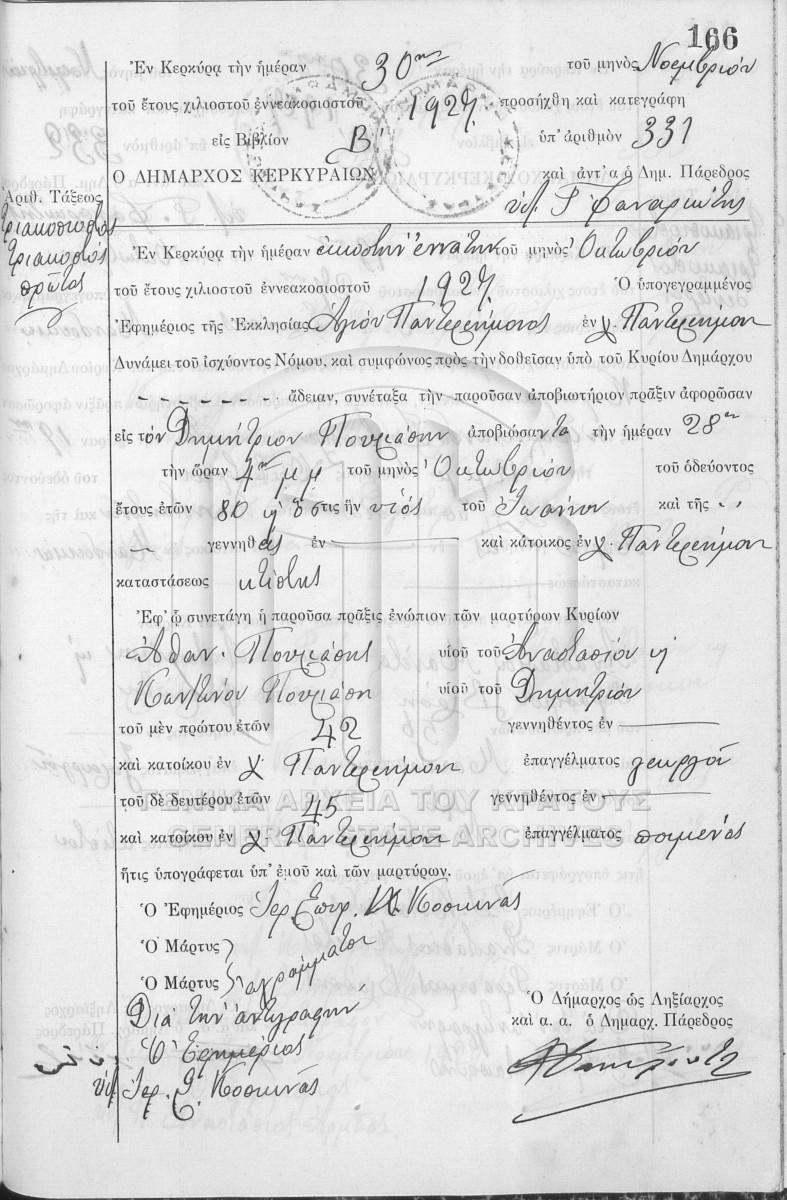 166
Ἐν Κερκύρᾳ τὴν ἡμέραν 30ην τοῦ μηνὸς Νοεμβρίου
τοῦ ἔτους χιλιοστοῦ ἐννεακοσιοστοῦ 1927 προσήχθη καὶ κατεγράφη
εἰς Βιβλίον Β' ὑπ' ἀριθμὸν 331
Ὁ ΔΗΜΑΡΧΟΣ ΚΕΡΚΥΡΑΙΩΝ καὶ ἀντ' α ὁ Δημ. Πάρεδρος
Ἀριθ. Τάξεως
τριακοσιοστὸς
τριακοστὸς
πρῶτος
Ἐν Κερκύρᾳ τὴν ἡμέραν εἰκοστὴν ἐννάτην τοῦ μηνὸς Ὀκτωβρίου
τοῦ ἔτους χιλιοστοῦ ἐννεακοσιοστοῦ 1927. Ὁ ὑπογεγραμμένος
Ἐφημέριος τῆς Ἐκκλησίας Ἁγίου Παντελεήμονος ἐν χ. Παντελεήμον
Δυνάμει τοῦ ἰσχύοντος Νόμου, καὶ συμφώνως πρὸς τὴν δοθεῖσαν ὑπὸ τοῦ Κυρίου Δημάρχου
ἄδειαν, συνέταξα τὴν παροῦσαν ἀποβιωτήριον πρᾶξιν ἀφορῶσαν
εἰς τὸν Δημήτριον Πουλιάσην ἀποβιώσαντα τὴν ἡμέραν 28ην
τὴν ὥραν 4ην μ μ τοῦ μηνὸς Ὀκτωβρίου τοῦ ὁδεύοντος
ἔτους ἐτῶν 80 ὅστις ἦν υἱὸς τοῦ Ἰωάννου καὶ τῆς
γεννηθεὶς ἐν καὶ κάτοικος ἐν χ. Παντελεήμον
καταστάσεως κτίστης
Ἐφ' ᾧ συνετάγη ἡ παροῦσα πρᾶξις ἐνώπιον τῶν μαρτύρων Κυρίων
Ἀθαν. Πουλιάσης υἱοῦ τοῦ Ἀναστασίου
Κωνσταντίνου Πουλιάση υἱοῦ τοῦ Δημητρίου
τοῦ μὲν πρώτου ἐτῶν 42 γεννηθέντος ἐν
καὶ κατοίκου ἐν χ. Παντελεήμον ἐπαγγέλματος γεωργοῦ
τοῦ δὲ δευτέρου ἐτῶν 45 γεννηθέντος ἐν
ΓΕΝΙΚΑ ΑΡΧΕΙΑ ΤΟΥ ΚΡΑΤΟΥΣ
καὶ κατοίκου ἐν χ. Παντελεήμον ἐπαγγέλματος ποιμένος
GENERAL STATE ARCHIVES
ἥτις ὑπογράφεται ὑπ' ἐμοῦ καὶ τῶν μαρτύρων.
Ὁ Ἐφημέριος Ἱερ. Σπυρ. Κοσκινᾶς
Ὁ Μάρτυς
Ὁ Μάρτυς ἀγράμματοι
Διὰ τὴν ἀντιγραφὴν
Ὁ Ἐφημέριος
Ἱερ. Σ. Κοσκινᾶς
Ὁ Δήμαρχος ὡς Ληξίαρχος
καὶ α. α. ὁ Δημαρχ. Πάρεδρος